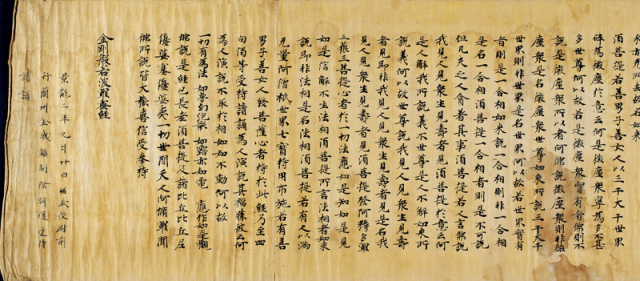 須菩提若善男子善女人以三千大千世界
碎為微塵於意云何是微塵衆寧為多不甚
多世尊何以故若是微塵衆實有者佛則不
說是微塵衆所以者何佛說微塵衆則非微
塵衆是名微塵衆世尊如來所說三千大千
世界則非世界是名世界何以故若世界實有
者則是一合相如來說一合相則非一合相
是名一合相須菩提一合相者則是不可說
但凡夫之人貪著其事須菩提若人言佛說
我見人見衆生見壽者見須菩提於意云何
是人解我所說義不世尊是人不解如來所
說義何以故世尊說我見人見衆生見壽
者見即非我見人見衆生見壽者見是名我
見人見衆生見壽者見須菩提發阿耨多羅
三藐三菩提心者於一切法應如是知如是見
如是信解不生法相須菩提所言法相者如來
說即非法相是名法相須菩提若有人以滿
無量阿僧祇世界七寶持用布施若有善
男子善女人發菩薩心者持於此經乃至四
句偈等受持讀誦為人演說其福勝彼云何
為人演說不取於相如如不動何以故
一切有為法 如夢幻泡影 如露亦如電 應作如是觀
佛說是經已長老須菩提及諸比丘比丘尼
優婆塞優婆夷一切世間天人阿脩羅聞
佛所說皆大歡喜信受奉持
金剛般若波羅蜜經
景龍二年九月廿日昭武校尉前
行蘭州金城鎮副陰嗣瑗受持
讀誦